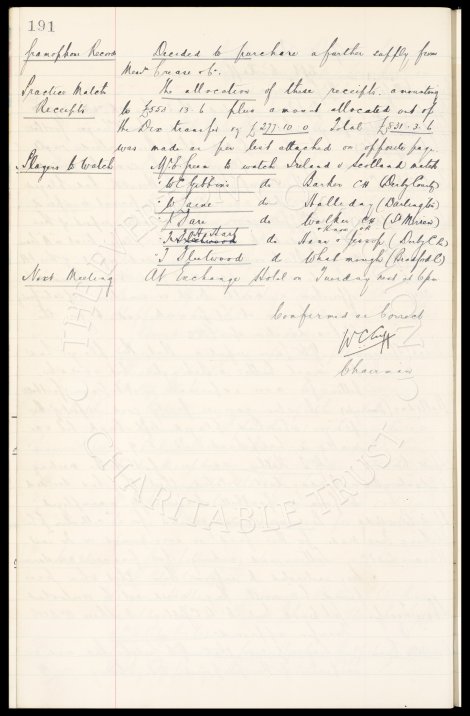 191
Gramophone Records Decided to purchase a further supply from
Messrs Crease & Co.
Practice Match The allocation of these receipts, amounting
Receipts to £553-13-6 plus amount allocated out of
the Dix transfer of £277.10.0 Total £831.3.6
was made as per list attached on opposite page.
Players to Watch Mr Green to watch Ireland v Scotland match
" W C Gibbins do Barker CH (Derby County)
" do Halliday (Darlington)
" do Walker CH (St Mirren)
" H Hart do Hann & Jessop (Derby C R)
" T Fleetwood do Whatmough (Bradford C)
Next Meeting At Exchange Hotel on Tuesday next at 6pm
Confirmed as Correct
W.C. Cuff
Chairman
CHARITABLE TRUST